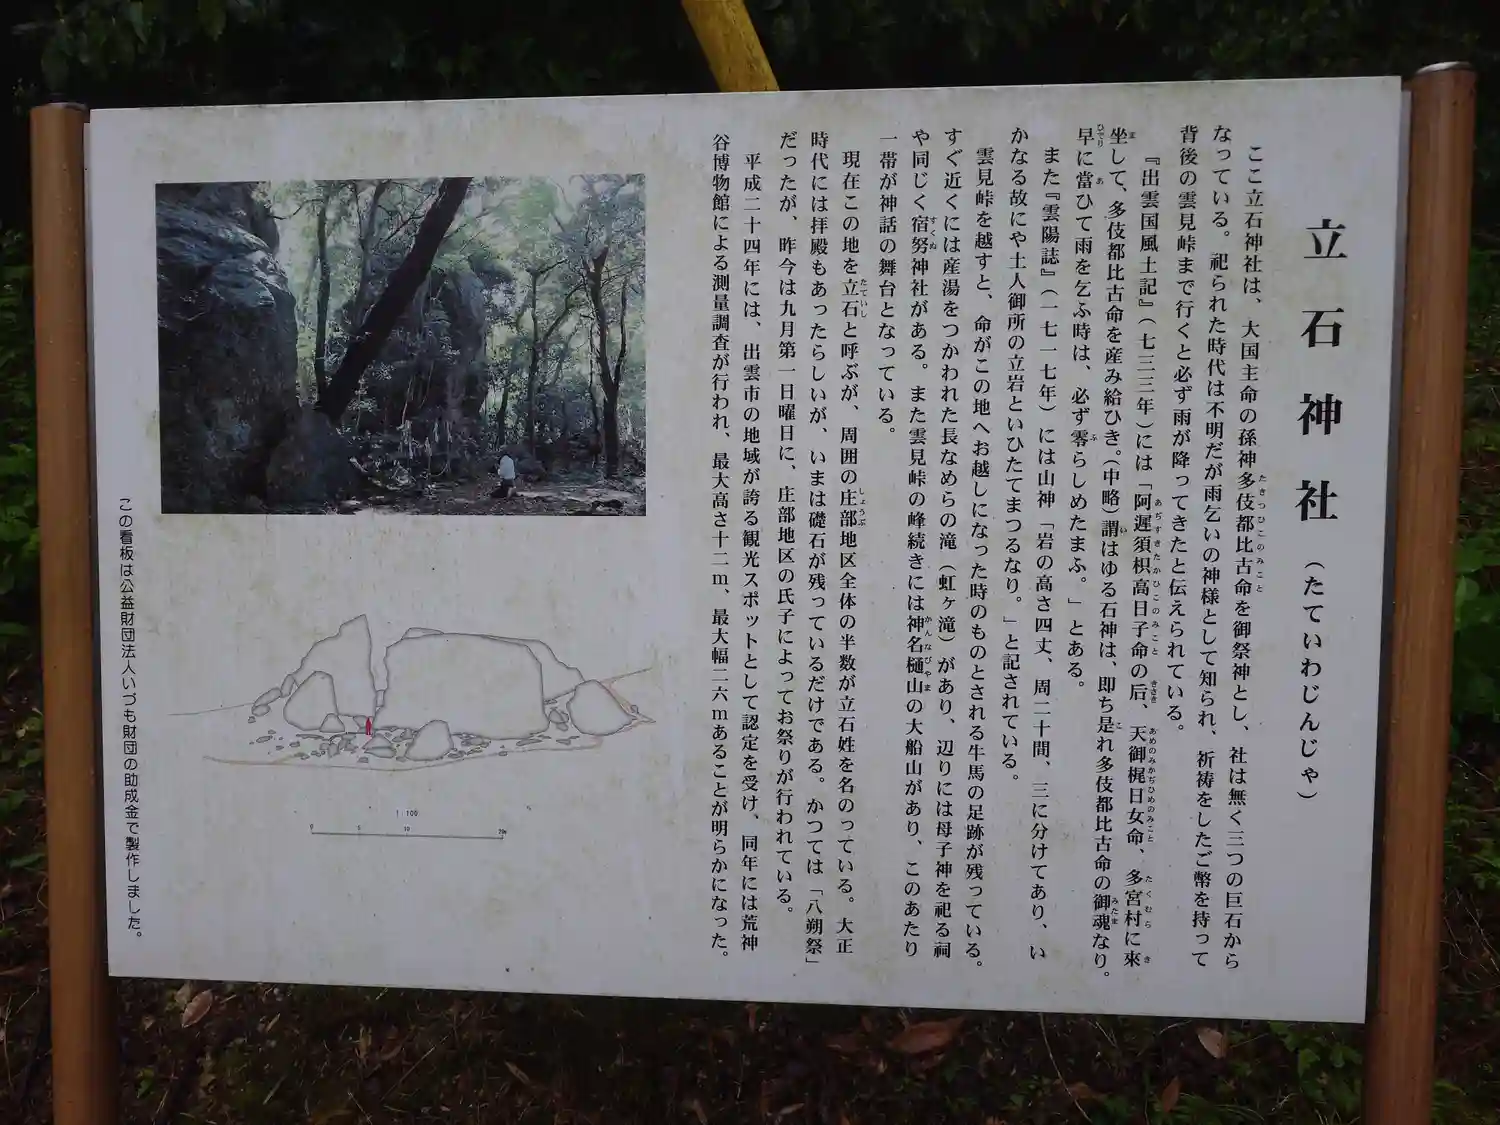 立石神社（たていわじんじゃ）
ここ立石神社は、大国主命の孫神多伎都比古命を御祭神とし、社は無く三つの巨石から
なっている。祀られた時代は不明だが雨乞いの神様として知られ、祈祷をしたご幣を持って
背後の雲見峠まで行くと必ず雨が降ってきたと伝えられている。
『出雲国風土記』（七三三年）には「阿遅須枳高日子命の后、天御梶日女命、多宮村に來
坐して、多伎都比古命を産み給ひき。（中略）謂はゆる石神は、即ち是れ多伎都比古命の御魂なり。
旱に當ひて雨を乞ふ時は、必ず零らしめたまふ。」とある。
また『雲陽誌』（一七一七年）には山神「岩の高さ四丈、周二十間、三に分けてあり、い
かなる故にや土人御所の立岩といひたてまつるなり。」と記されている。
雲見峠を越すと、命がこの地へお越しになった時のものとされる牛馬の足跡が残っている。
すぐ近くには産湯をつかわれた長なめらの滝（虹ヶ滝）があり、辺りには母子神を祀る祠
や同じく宿努神社がある。また雲見峠の峰続きには神名樋山の大船山があり、このあたり
一帯が神話の舞台となっている。
現在この地を立石と呼ぶが、周囲の庄部地区全体の半数が立石姓を名のっている。大正
時代には拝殿もあったらしいが、いまは礎石が残っているだけである。かつては「八朔祭」
だったが、昨今は九月第一日曜日に、庄部地区の氏子によってお祭りが行われている。
平成二十四年には、出雲市の地域が誇る観光スポットとして認定を受け、同年には荒神
谷博物館による測量調査が行われ、最大高さ十二m、最大幅二六mあることが明らかになった。
1:100
0 5 10 20m
この看板は公益財団法人いづも財団の助成金で製作しました。